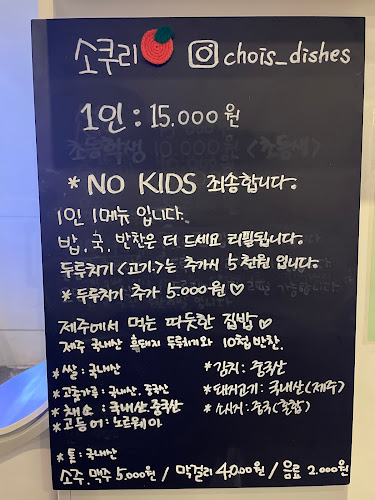 소쿠리 chois_dishes
1인 : 15.000원
초등학생 10.000원 <초등생>
* NO KIDS 죄송합니다.
1인 1메뉴 입니다.
밥.국.반찬은 더 드세요 리필됩니다.
두루치기 <고기>는 추가시 5천원 입니다.
* 두루치기 추가 5.000원♡
제주에서 먹는 따듯한 집밥♡
제주 국내산 흑돼지 두루치기와 10첩 반찬.
*쌀 : 국내산 *김치 : 중국산
*고춧가루 : 국내산. 중국산 *돼지고기 : 국내산(제주)
*채소 : 국내산.중국산
*고등어 : 노르웨이
*톳 : 국내산
소주.맥주 5.000원 / 막걸리 4.000원 / 음료 2.000원